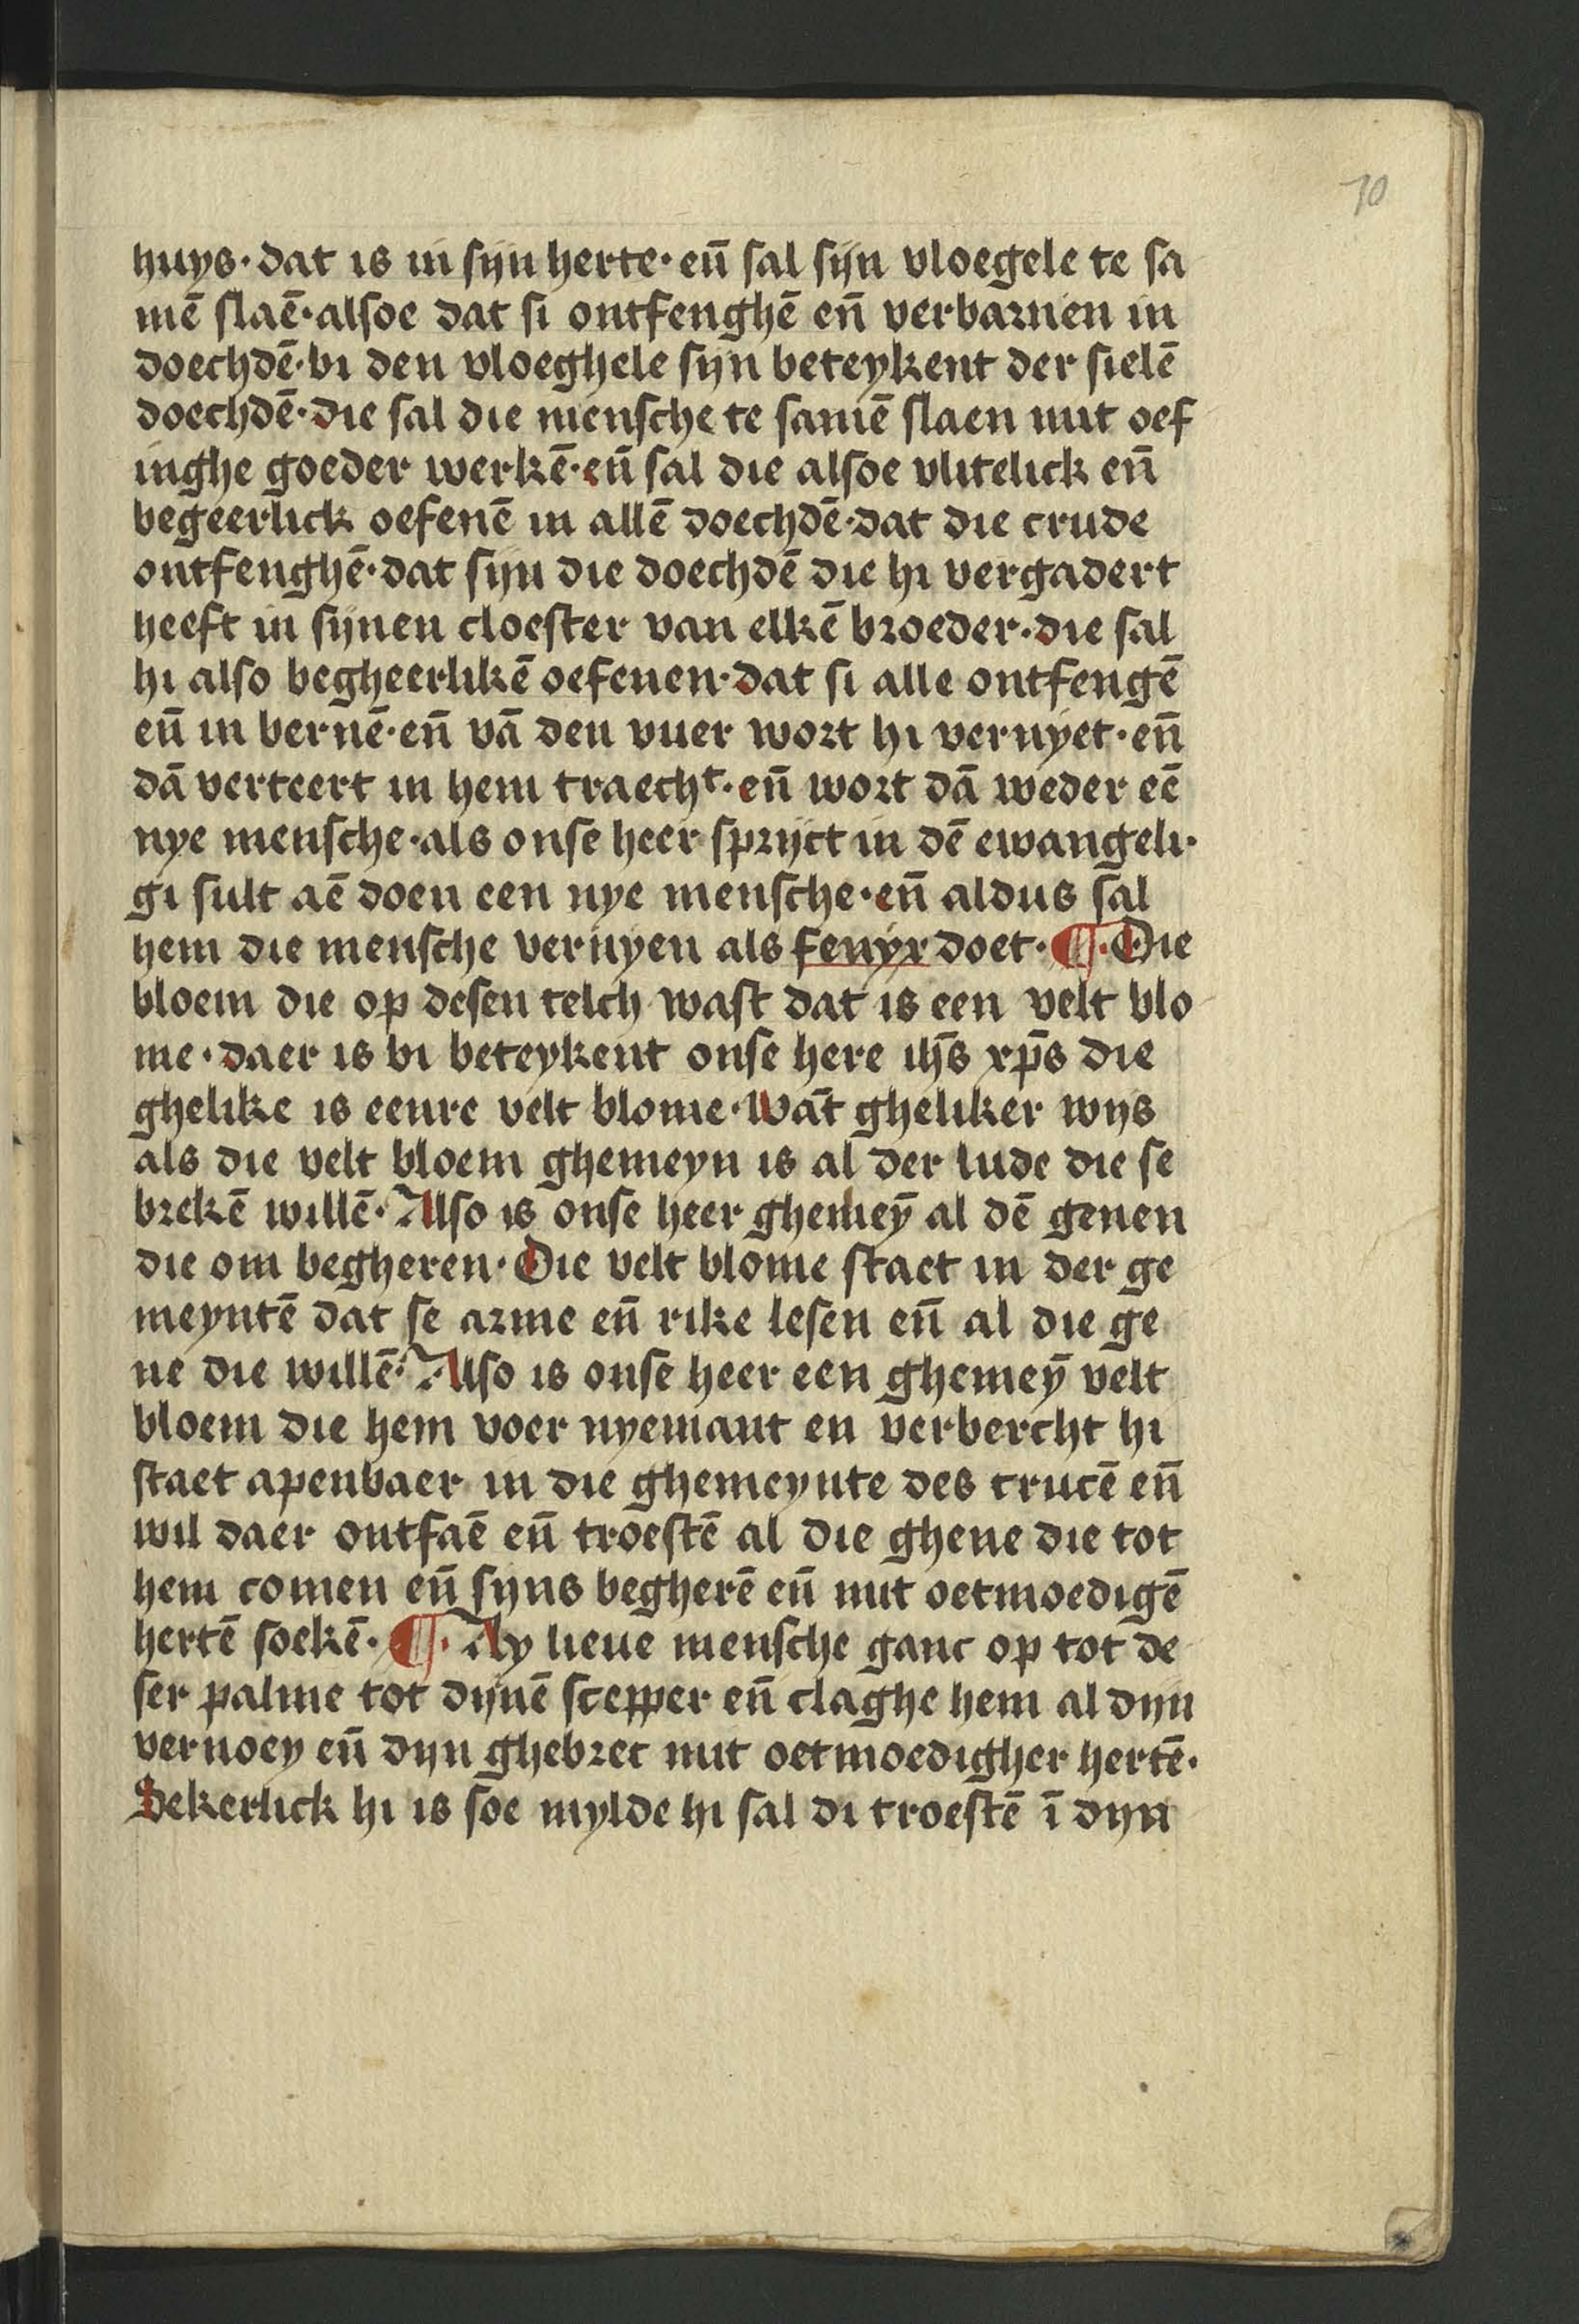 70
huys· dat is in sijn herte· eñ sal sijn vloegele te sa
mē slaē· alsoe dat si ontfenghē eñ verbarnen in
doechdē· bi den vloeghele sijn beteykent der sielē
doechdē· die sal die mensche te samē slaen mit oef
inghe goeder werkē· eñ sal die alsoe vlitelick eñ
begeerlick oefenē in allē doechdē· dat die crude
ontfenghē· dat sijn die doechdē die hi vergadert
heeft in sijnen cloester van elkē broeder· die sal
hi also begheerlikē oefenen· dat si alle ontfengē
eñ in bernē· eñ vā den vuer wort hi vernyet· eñ
dā verteert in hem traechᵗ· eñ wort dā weder eē
nye mensche· als onse heer sprijct in dē ewangeli·
gi sult aē doen een nye mensche· eñ aldus sal
hem die mensche vernyen als fenyx doet· ¶· Die
bloem die op desen telch wast dat is een velt blo
me· daer is bi beteykent onse here ihs̄ xp̄s die
ghelike is eenre velt blome· Wāt gheliker wijs
als die velt bloem ghemeyn is al der lude die se
brekē willē· Also is onse heer ghemeȳ al dē genen
die om begheren· Die velt blome staet in der ge
meyntē dat se arme eñ rike lesen eñ al die ge
ne die willē· Also is onse heer een ghemeȳ velt
bloem die hem voer nyemant en verbercht hi
staet apenbaer in die ghemeynte des crucē eñ
wil daer ontfaē eñ troestē al die ghene die tot
hem comen eñ sijns begherē eñ mit oetmoedigē
hertē soekē· ¶· Ay lieue mensche ganc op tot de
ser palme tot dijnē scepper eñ claghe hem al dijn
vernoey eñ dijn ghebrec mit oetmoedigher hertē·
Sekerlick hi is soe mylde hi sal di troestē ī dijn